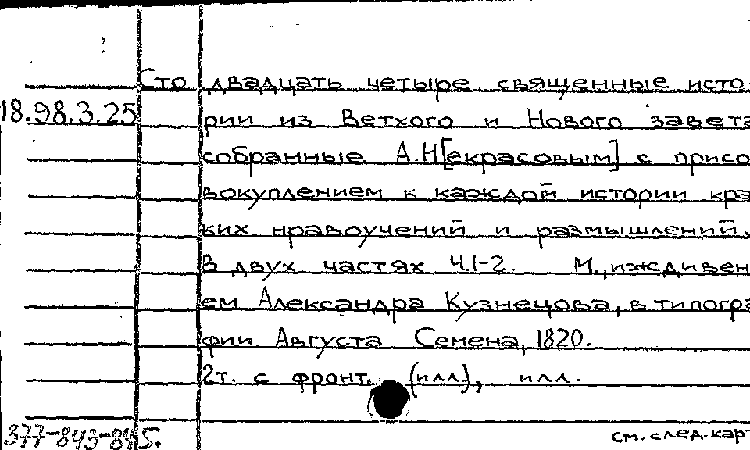 Сто двадцать четыре священные исто
18.98.3.25
рии из Ветхого и Нового завета
собранные А.Н[екрасовым] с присо
вокуплением к каждой истории кра
ких нравоучений и размышлений.
В двух частях Ч.1-2. М., иждивен
ем Александра Кузнецова, в типогра
фии Августа Семена, 1820.
2т. с фронт. (илл.), илл.
377-843-845.
см. след. карт